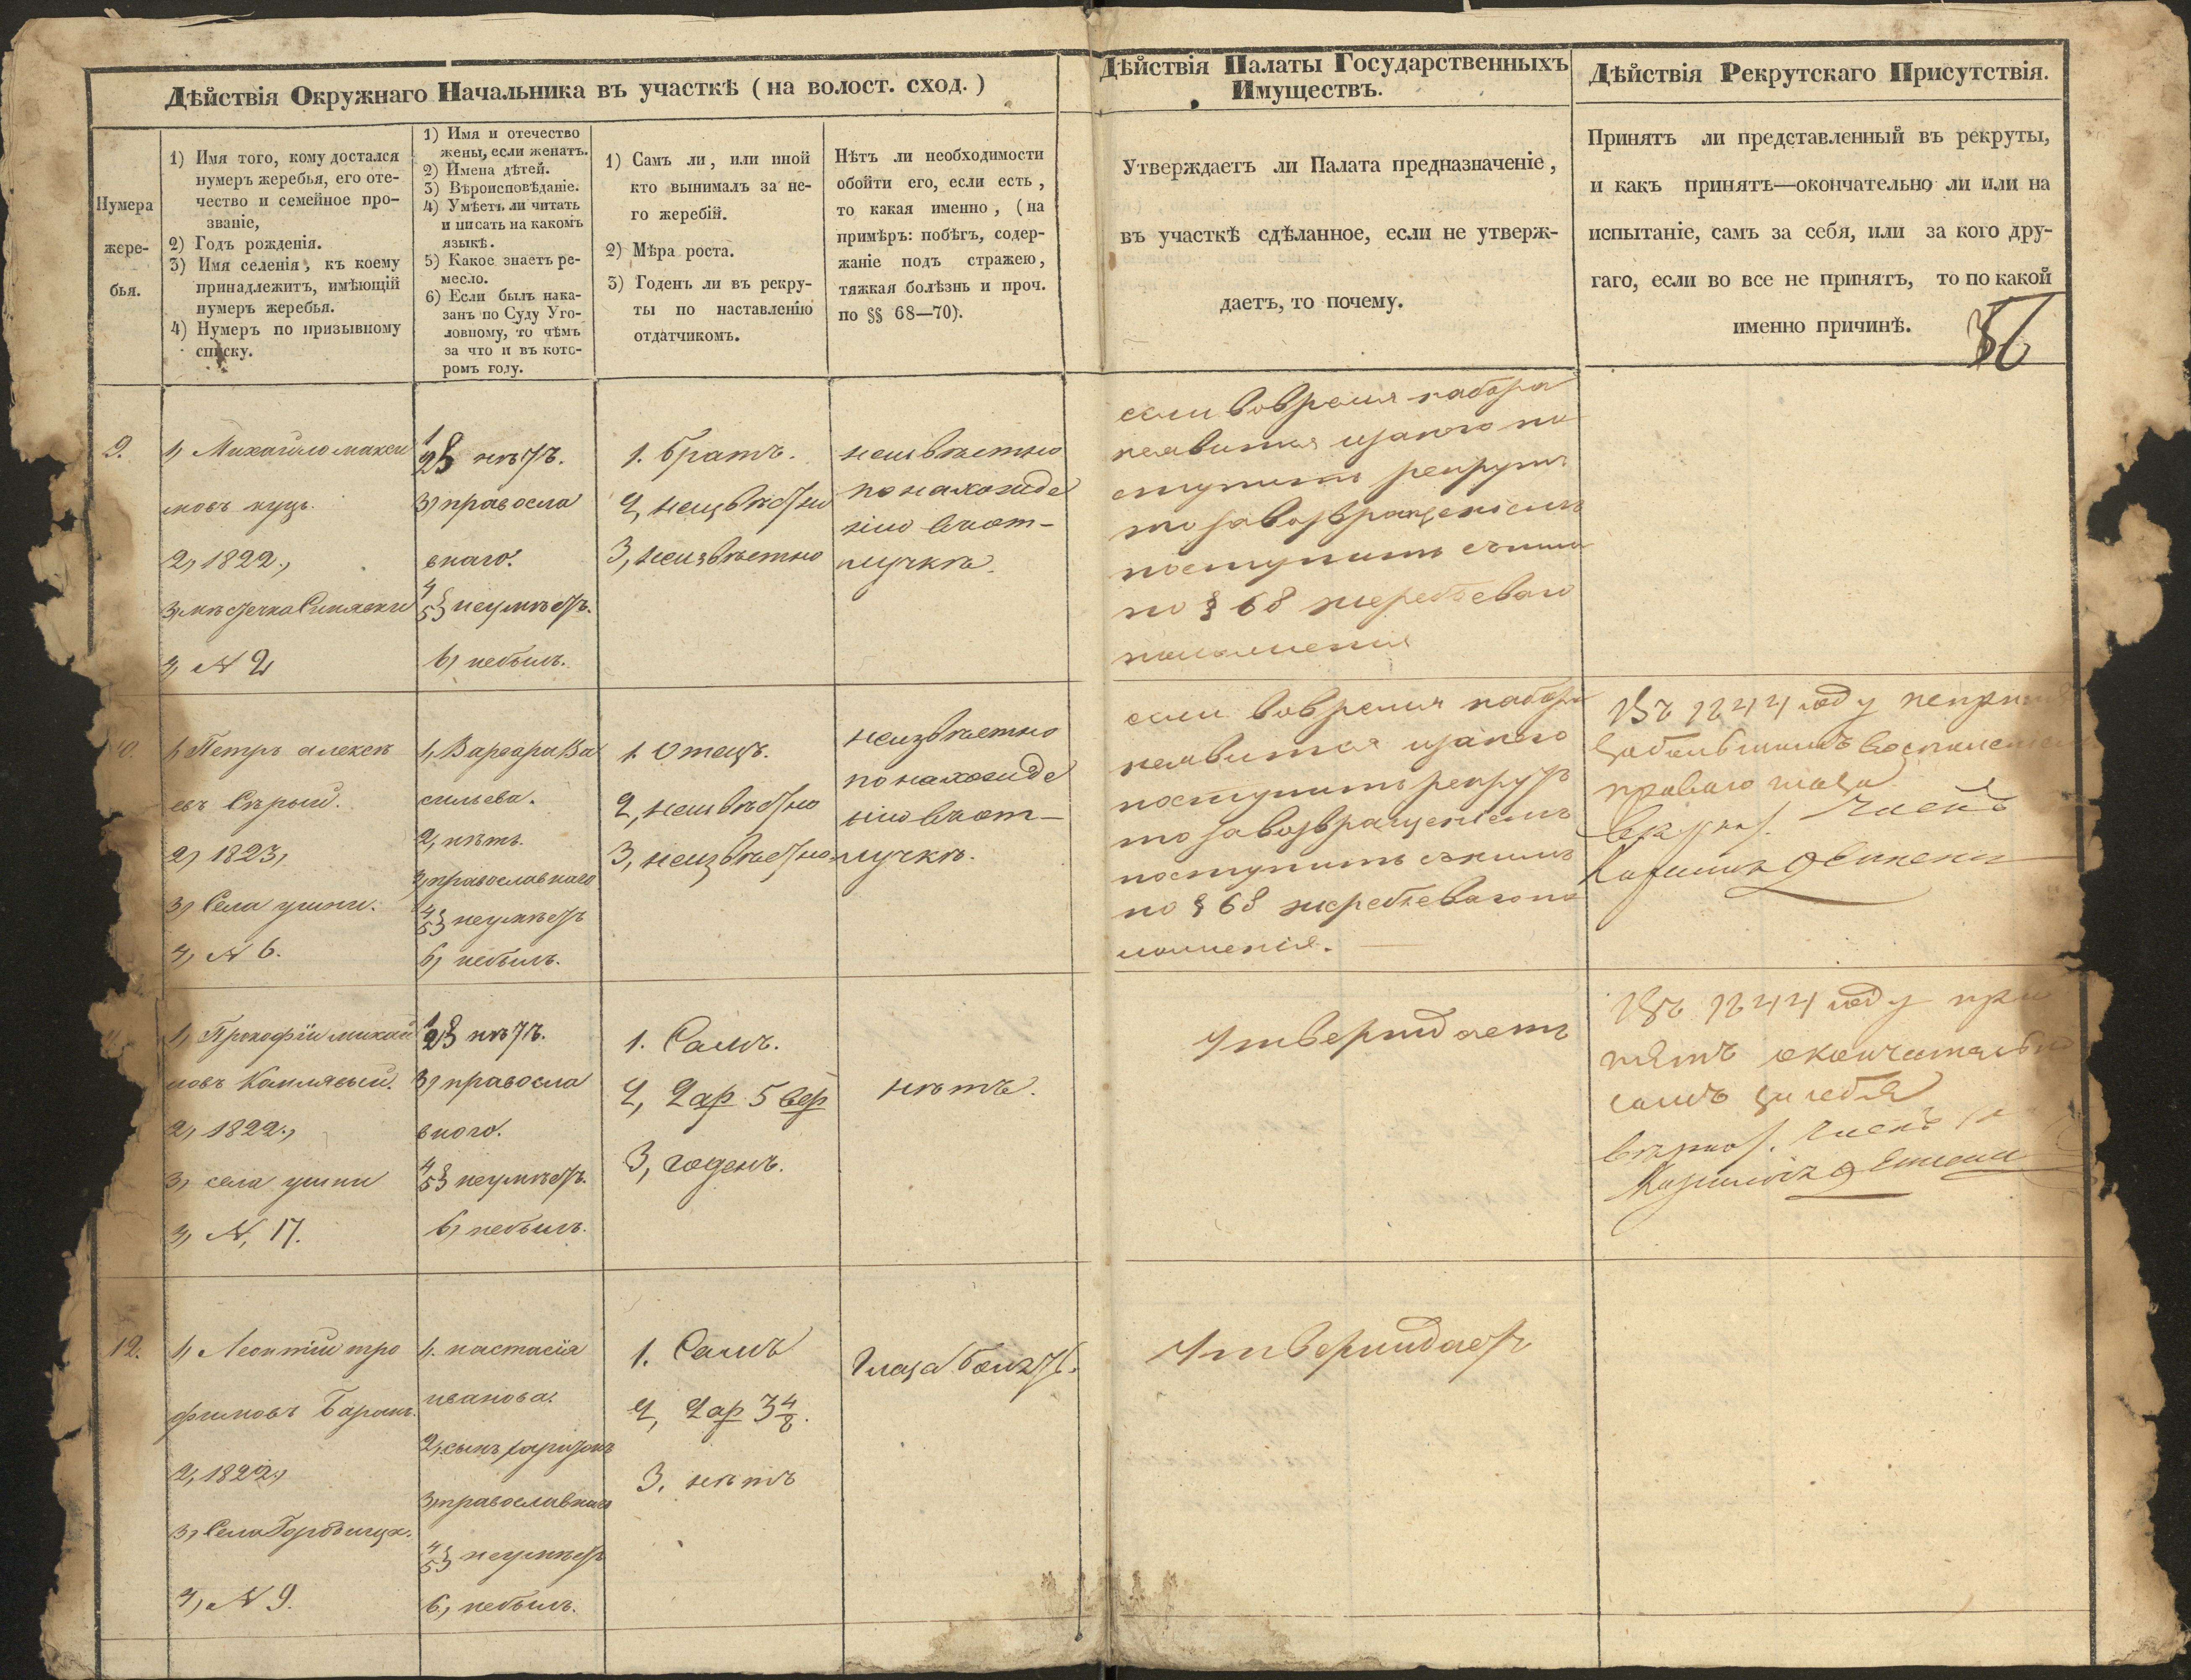 Дѣйствія Окружнаго Начальника въ участкѣ (на волост. сход.)
Дѣйствія Палаты Государственныхъ
Имуществъ.
Дѣйствія Рекрутскаго Присутствія.
Нумера
жере-
бья.
1) Имя того, кому достался
нумеръ жеребья, его оте-
чество и семейное про-
званіе,
2) Годъ рожденія.
3) Имя селенія, къ коему
принадлежитъ, имѣющій
нумеръ жеребья.
4) Нумеръ по призывному
списку.
1) Имя и отечество
жены, если женатъ.
2) Имена дѣтей.
3) Вѣроисповѣданіе.
4) Умѣетъ ли читать
и писать на какомъ
языкѣ.
5) Какое знаетъ ре-
месло.
6) Если былъ нака-
занъ по Суду Уго-
ловному, то чѣмъ
за что и въ кото-
ромъ году.
1) Самъ ли, или иной
кто вынималъ за не-
го жеребій.
2) Мѣра роста.
3) Годенъ ли въ рекру-
ты по наставленію
отдатчикомъ.
Нѣтъ ли необходимости
обойти его, если есть,
то какая именно, (на
примѣръ: побѣгъ, содер-
жаніе подъ стражею,
тяжкая болѣзнь и проч.
по §§ 68—70).
Утверждаетъ ли Палата предназначеніе,
въ участкѣ сдѣланное, если не утверж-
даетъ, то почему.
Принятъ ли представленный въ рекруты,
и какъ принятъ—окончательно ли или на
испытаніе, самъ за себя, или за кого дру-
гаго, если во все не принятъ, то по какой
именно причинѣ.
9.
1, Михайло макси
мовъ куцъ.
2, 1822.,
3, мѣстечка Синявки
4, N 2
1
2} нѣтъ.
3, правосла
внаго.
4
5} неумѣетъ.
6, небылъ.
1. братъ.
2, неизвѣстно
3, неизвѣстно
неизвѣстно
по нахожде
нію въ от-
лучкѣ.
если вовремя набора
неявится и за него по
ступитъ рекрутъ
то за возвращеніемъ
поступить с нимъ
по § 68 жеребьеваго
положенія
1, Петръ алексѣ
евъ Сѣрый.
2, 1823,
3, Села ушни.
4, N 6.
1, Варвара Ва
сильева.
2, нѣтъ.
3, православнаго
4
5} неумѣетъ
6, небылъ.
1. Отецъ.
2, неизвѣстно
3, неизвѣстно
неизвѣстно
по нахожде
нію въ от-
лучкѣ.
если вовремя набора
неявится и за него
поступитъ рекрутъ
то за возвращеніемъ
поступить с нимъ
по § 68 жеребьеваго по
ложенія.
Въ 1844 году
праваго глаза
Членъ
1, Прокофій михай
ловъ
2, 1822.,
3, села ушни
4, N, 17.
1
2} нѣтъ.
3, правосла
вного.
4
5} неумѣетъ.
6, небылъ.
1. Самъ.
2, 2 ар 5 вер
3, годенъ.
нѣтъ.
Утверждаетъ
Въ 1844 году при
нятъ окончательно
самъ за себя
Членъ
12.
1, Леонтій тро
фимовъ Баранъ.
2, 1822,
3, Села Городища.
4, N 9.
1. настасія
иванова.
2, сынъ
3, православнаго
4
5} неумѣетъ
6, небылъ.
1. Самъ
2, 2 ар 3 4/8.
3. нѣтъ
Глаза болятъ.
Утверждаетъ